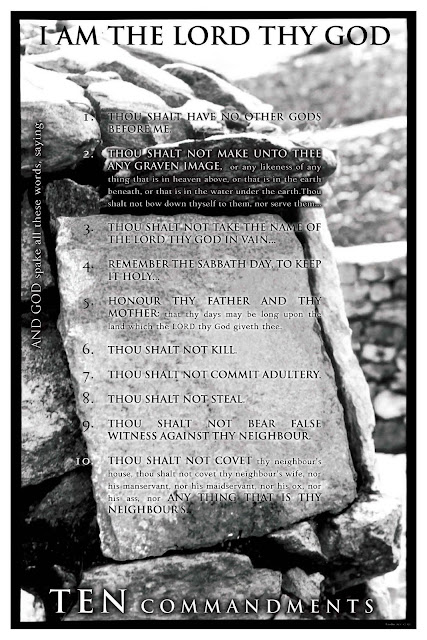 I AM THE LORD THY GOD
AND GOD spake all these words, saying,
1. THOU SHALT HAVE NO OTHER GODS
BEFORE ME.
2. THOU SHALT NOT MAKE UNTO THEE
ANY GRAVEN IMAGE, or any likeness of any
thing that is in heaven above, or that is in the earth
beneath, or that is in the water under the earth.Thou
shalt not bow down thyself to them, nor serve them...
3. THOU SHALT NOT TAKE THE NAME OF
THE LORD THY GOD IN VAIN...
4. REMEMBER THE SABBATH DAY, TO KEEP
IT HOLY...
5. HONOUR THY FATHER AND THY
MOTHER: that thy days may be long upon the
land which the LORD thy God giveth thee.
6. THOU SHALT NOT KILL.
7. THOU SHALT NOT COMMIT ADULTERY.
8. THOU SHALT NOT STEAL.
9. THOU SHALT NOT BEAR FALSE
WITNESS AGAINST THY NEIGHBOUR.
10. THOU SHALT NOT COVET thy neighbour's
house, thou shalt not covet thy neighbour's wife, nor
his manservant, nor his maidservant, nor his ox, nor
his ass, nor ANY THING THAT IS THY
NEIGHBOURS.
TEN COMMANDMENTS